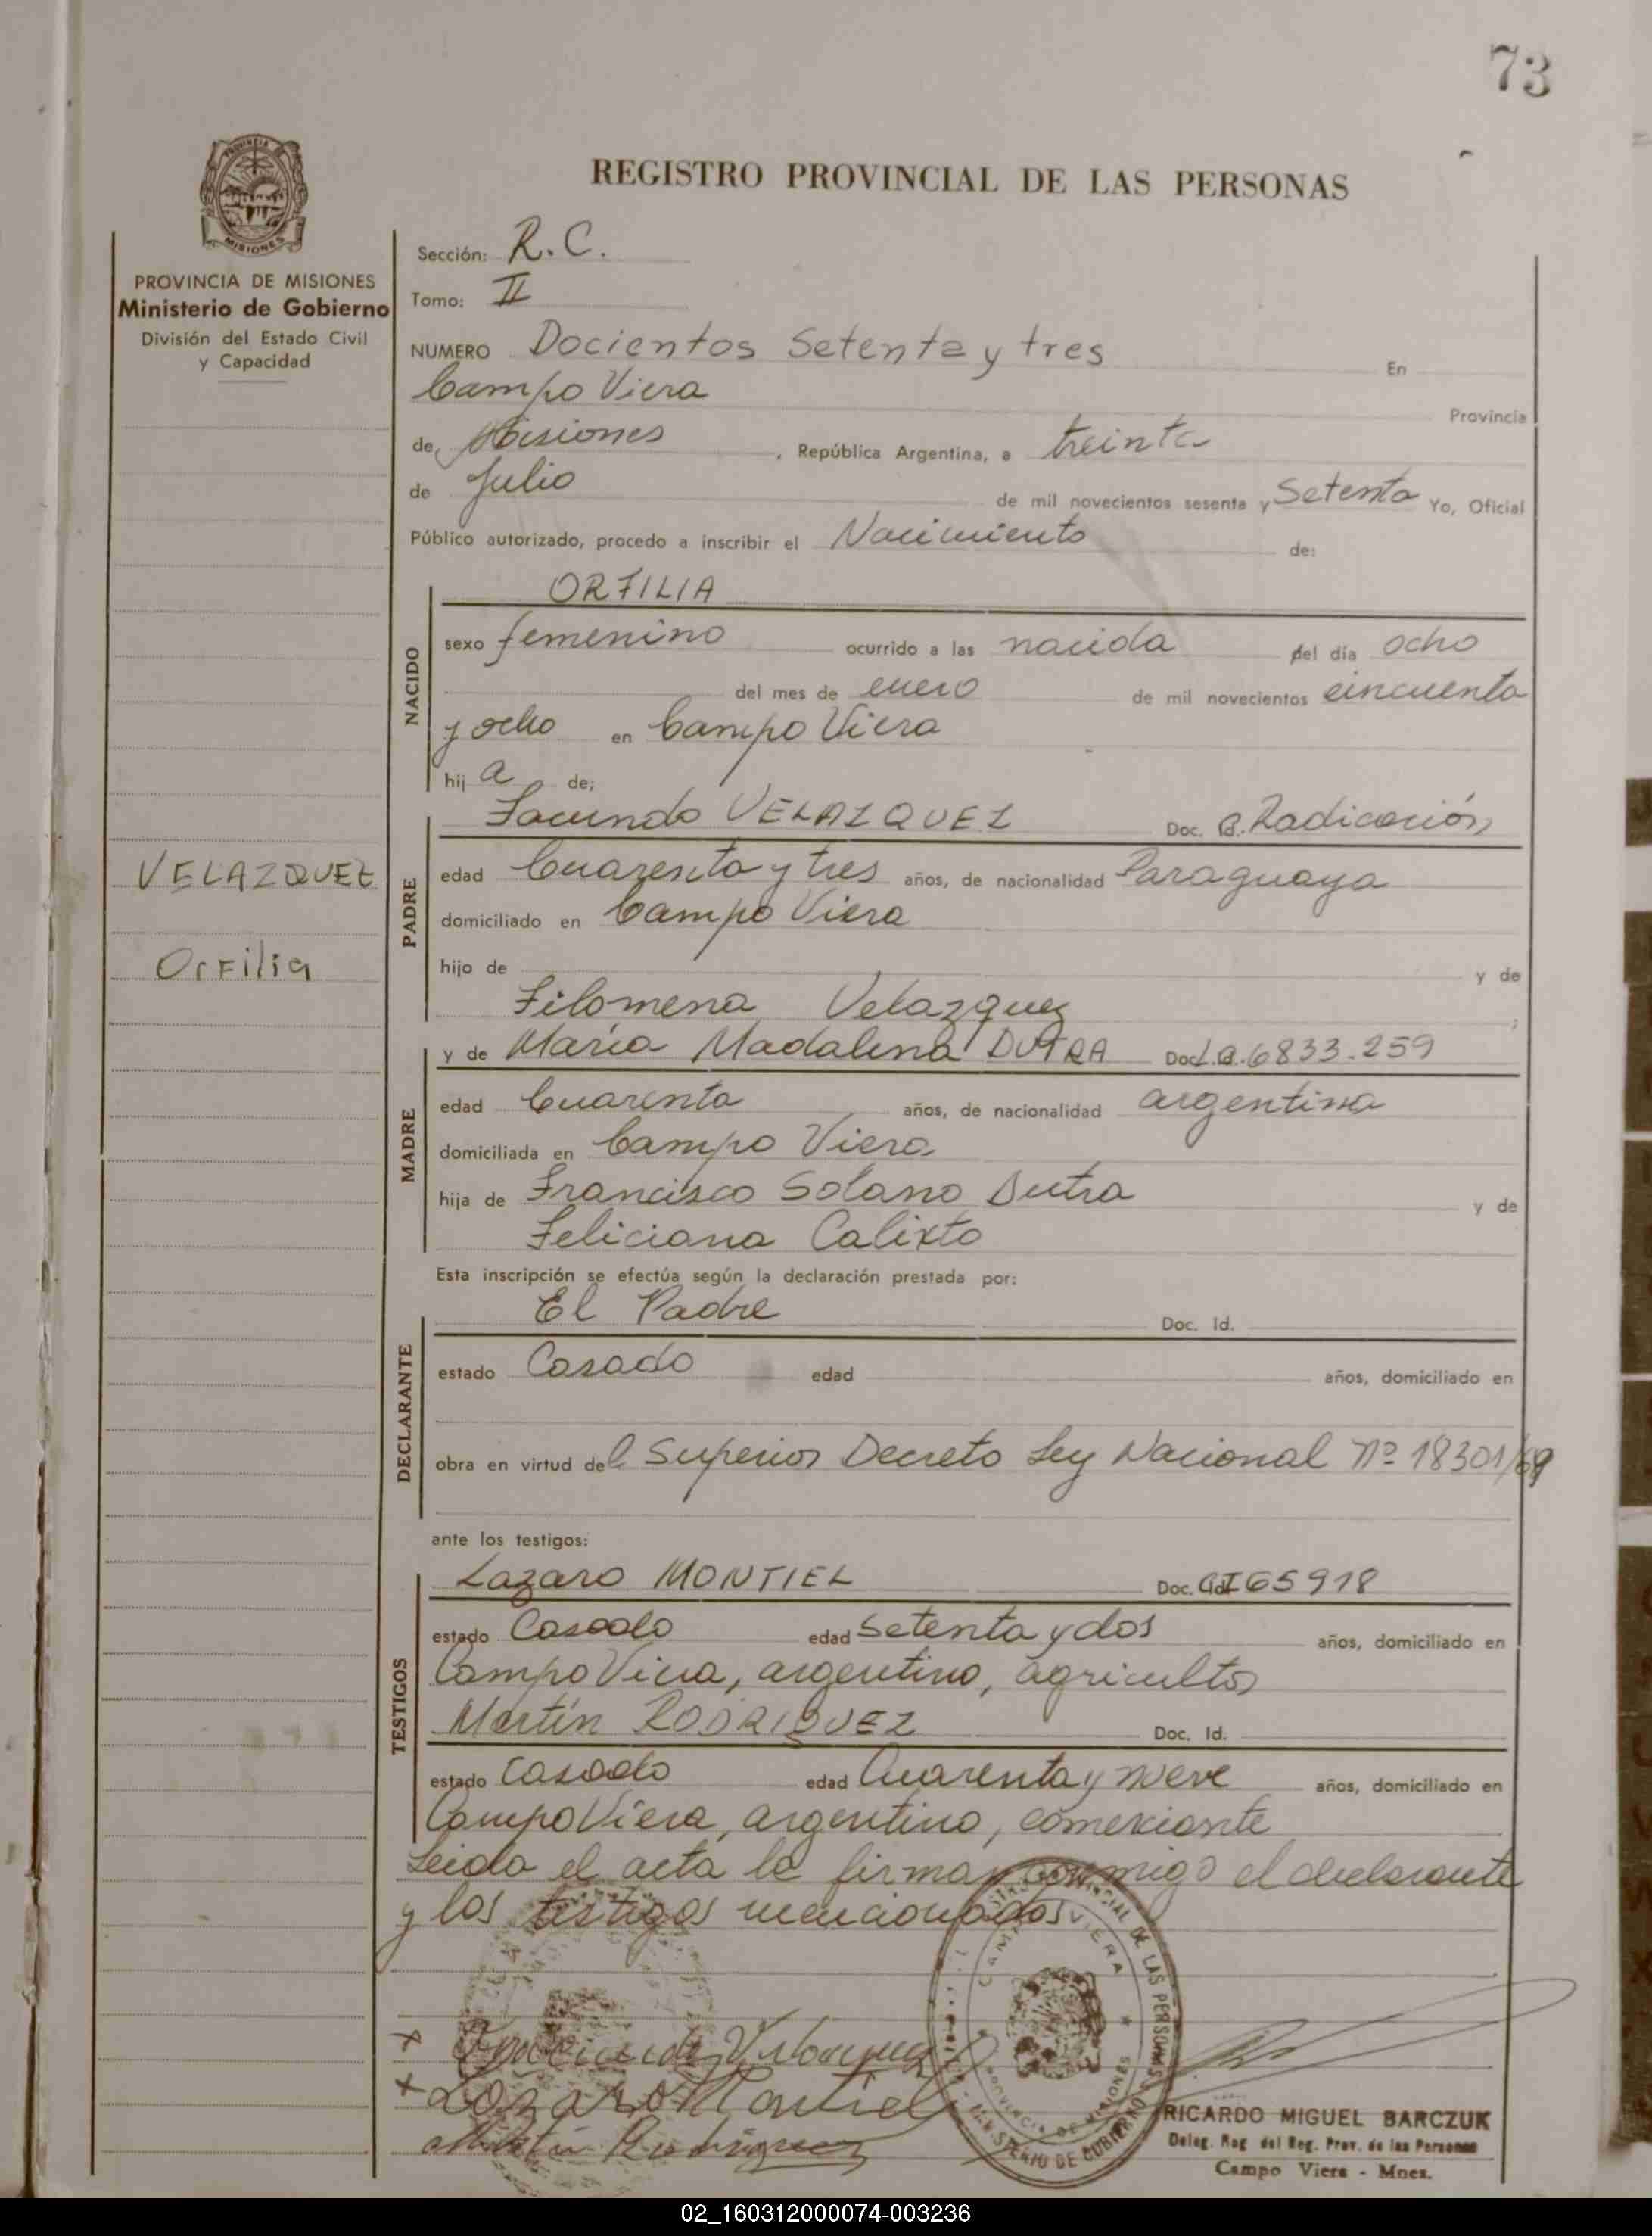 73
REGISTRO PROVINCIAL DE LAS PERSONAS
PROVINCIA DE MISIONES
Ministerio de Gobierno
División del Estado Civil
y Capacidad
Sección: R.C.
Tomo: II
NUMERO Docientos Setenta y tres En
Campo Viera Provincia
de Misiones, República Argentina, a treinta
de Julio de mil novecientos sesenta y Setenta Yo, Oficial
Público autorizado, procedo a inscribir el Nacimiento de:
NACIDO
ORFILIA
sexo femenino ocurrido a las nacida del día ocho
del mes de enero de mil novecientos cincuenta
y ocho en Campo Viera
hij a de;
PADRE
Facundo VELAZQUEZ Doc. Radicación
edad Cuarenta y tres años, de nacionalidad Paraguaya
domiciliado en Campo Viera
hijo de y de
Filomena Velazquez ;
VELAZQUEZ
Orfilia
MADRE
y de María Madalena DUTRA Doc. 6833.259
edad Cuarenta años, de nacionalidad argentina
domiciliada en Campo Viera
hija de Francisco Solano Dutra y de
Feliciana Calixto
Esta inscripción se efectúa según la declaración prestada por:
DECLARANTE
El Padre Doc. Id.
estado Casado edad años, domiciliado en
obra en virtud del Superior Decreto Ley Nacional Nº 18301/69
ante los testigos:
TESTIGOS
Lazaro MONTIEL Doc. CI 65918
estado Casado edad Setenta y dos años, domiciliado en
Campo Viera, argentino, agricultor
Martín RODRIGUEZ Doc. Id.
estado Casado edad Cuarenta y nueve años, domiciliado en
Campo Viera, argentino, comerciante
Leida el acta la firman conmigo el declarante
y los testigos mencionados
Lazaro Montiel
Martin Rodriguez
CAMPO VIERA
PROVINCIA DE MISIONES
MINISTERIO DE GOBIERNO
RICARDO MIGUEL BARCZUK
Deleg. Reg del Reg. Prov. de las Personas
Campo Viera - Mnes.
02_160312000074-003236